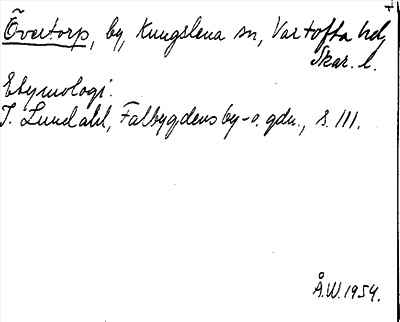 Övertorp, by, Kungslena sn, Vartofta hd,
Skar. l.
Etymologi.
I. Lundahl, Falbygdens by- o. gdn., s. 111.
Å.W. 1954.